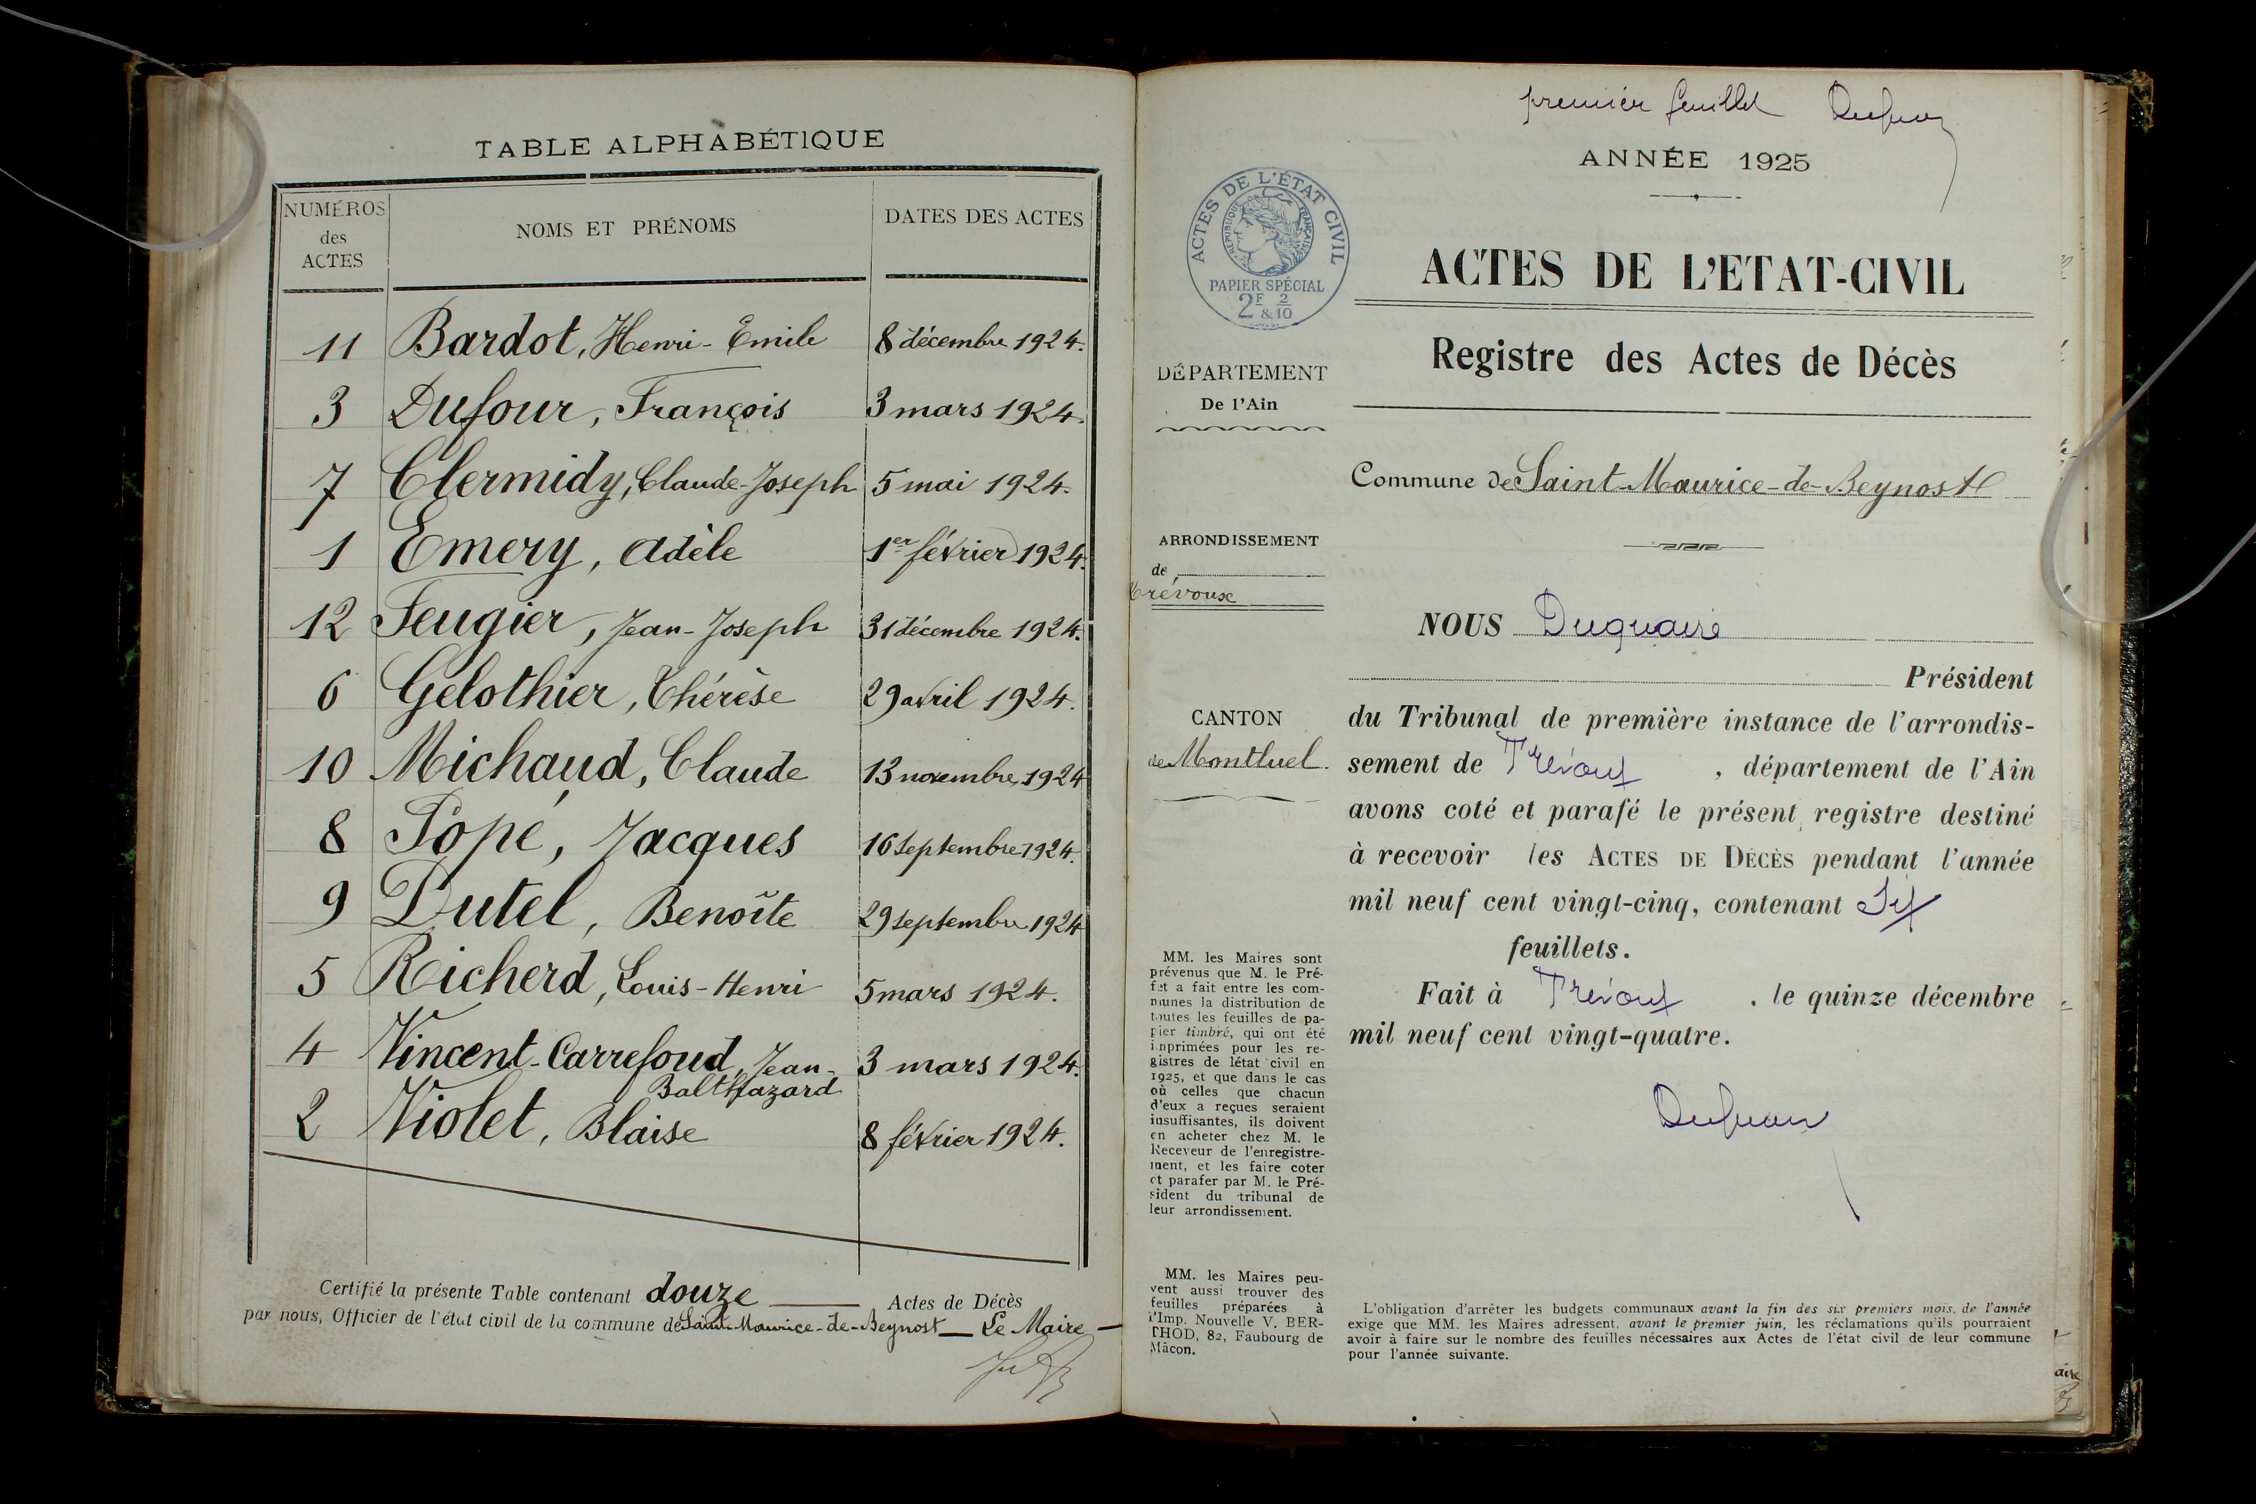 TABLE ALPHABÉTIQUE
NUMÉROS
des
ACTES
NOMS ET PRÉNOMS
DATES DES ACTES
11 Bardot, Henri-Emile 8 décembre 1924.
3 Dufour, François 3 mars 1924.
7 Clermidy, Claude-Joseph 5 mai 1924.
1 Emery, Adèle 1er février 1924.
12 Feugier, Jean-Joseph 31 décembre 1924.
6 Gelothier, Thérèse 29 avril 1924.
10 Michaud, Claude 13 novembre 1924
8 Popé, Jacques 16 septembre 1924.
9 Dutel, Benoîte 29 septembre 1924
5 Richerd, Louis-Henri 5 mars 1924.
4 Vincent-Carrefoud, Jean- 3 mars 1924.
Balthazard
2 Violet, Blaise 8 février 1924.
Certifié la présente Table contenant douze Actes de Décès
par nous, Officier de l'état civil de la commune de Saint-Maurice-de-Beynost Le Maire
premier feuillet
ANNÉE 1925
ACTES DE L'ÉTAT CIVIL
RÉPUBLIQUE FRANÇAISE
PAPIER SPÉCIAL
2F 2
&10
ACTES DE L'ETAT-CIVIL
Registre des Actes de Décès
DÉPARTEMENT
De l'Ain
Commune de Saint-Maurice-de-Beynost
ARRONDISSEMENT
de
Trévoux
CANTON
de Montluel.
NOUS Duquaire
Président
du Tribunal de première instance de l'arrondis-
sement de Trévoux, département de l'Ain
avons coté et parafé le présent registre destiné
à recevoir les ACTES DE DÉCÈS pendant l'année
mil neuf cent vingt-cinq, contenant Six
feuillets.
Fait à Trévoux, le quinze décembre
mil neuf cent vingt-quatre.
MM. les Maires sont
prévenus que M. le Pré-
fet a fait entre les com-
munes la distribution de
toutes les feuilles de pa-
pier timbré, qui ont été
imprimées pour les re-
gistres de létat civil en
1925, et que dans le cas
où celles que chacun
d'eux a reçues seraient
insuffisantes, ils doivent
en acheter chez M. le
Receveur de l'enregistre-
ment, et les faire coter
et parafer par M. le Pré-
sident du tribunal de
leur arrondissement.
MM. les Maires peu-
vent aussi trouver des
feuilles préparées à
l'Imp. Nouvelle V. BER-
THOD, 82, Faubourg de
Mâcon.
L'obligation d'arrêter les budgets communaux avant la fin des six premiers mois, de l'année
exige que MM. les Maires adressent, avant le premier juin, les réclamations qu'ils pourraient
avoir à faire sur le nombre des feuilles nécessaires aux Actes de l'état civil de leur commune
pour l'année suivante.